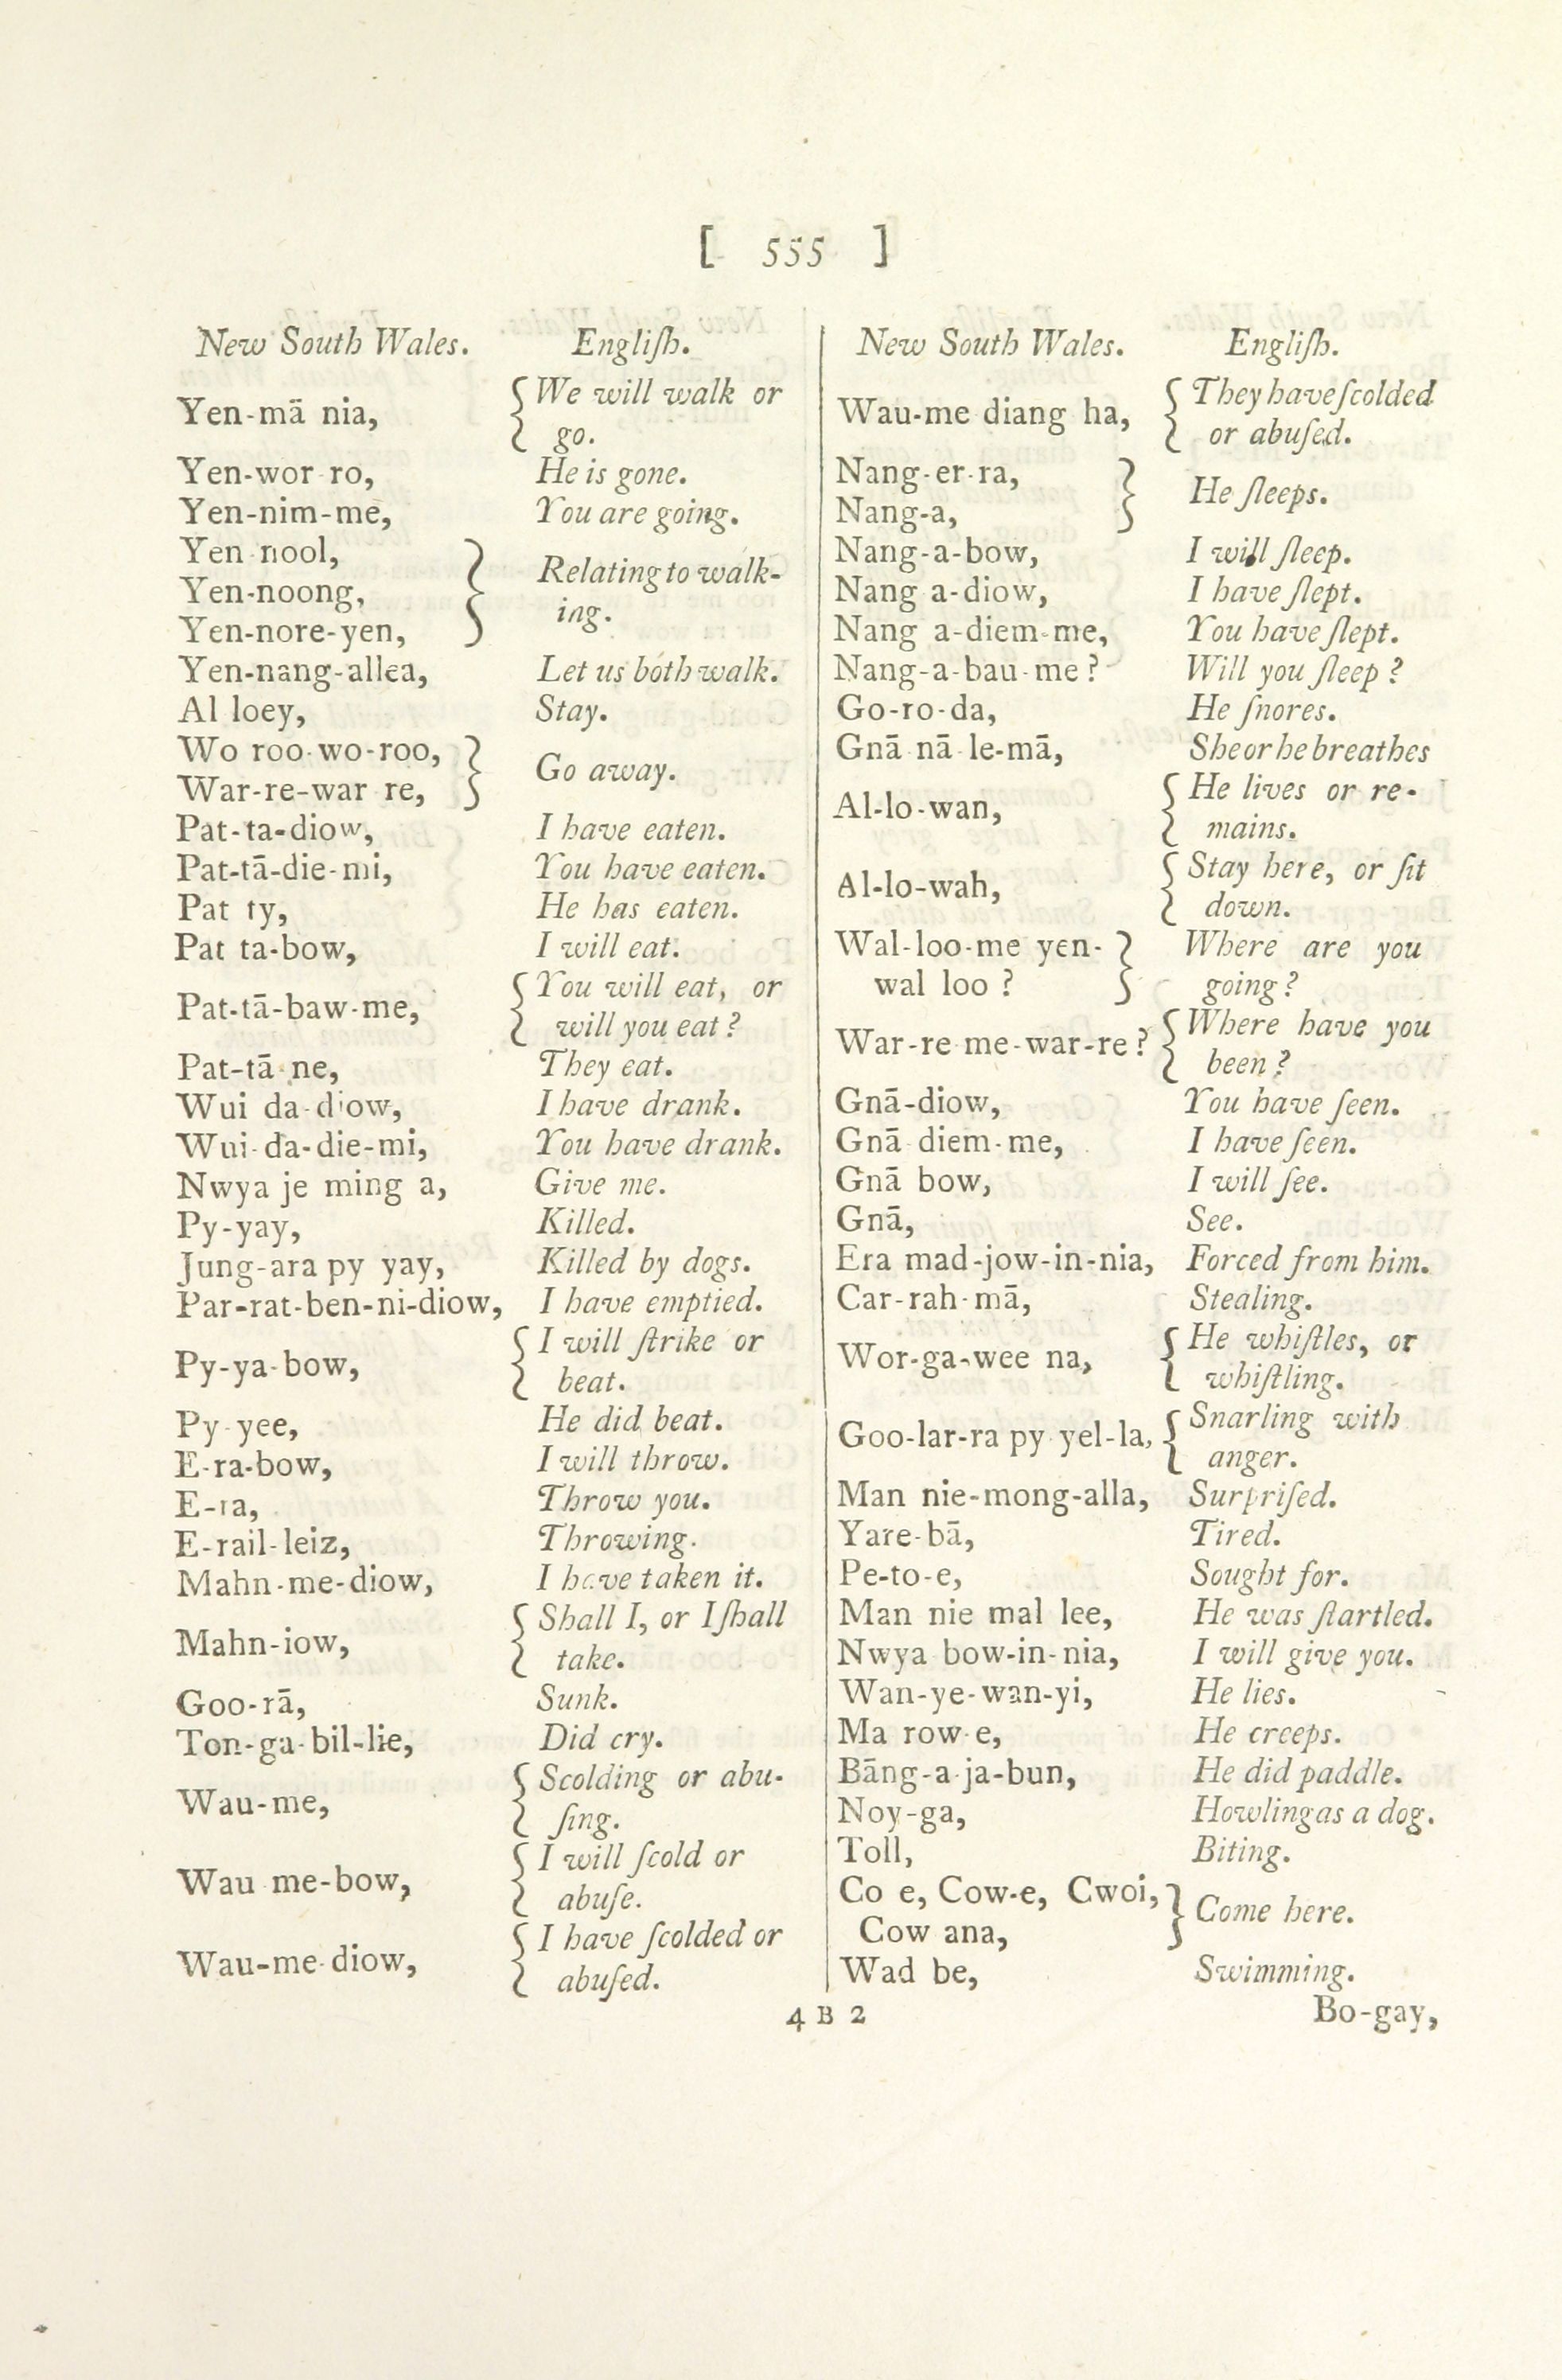 [ 555 ]
New South Wales. Engliſh.
Yen-mā nia, We will walk or
go.
Yen-wor ro, He is gone.
Yen-nim-me, You are going.
Yen nool,
Yen-noong, Relating to walk-
ing.
Yen-nore-yen,
Yen-nang-allea, Let us both walk.
Al loey, Stay.
Wo roo-wo-roo,
War-re-war re, Go away.
Pat-ta-diow, I have eaten.
Pat-tā-die-mi, You have eaten.
Pat ty, He has eaten.
Pat ta-bow, I will eat.
Pat-tā-baw-me, You will eat, or
will you eat?
Pat-tā-ne, They eat.
Wui da-diow, I have drank.
Wui-da-die-mi, You have drank.
Nwya je ming a, Give me.
Py-yay, Killed.
Jung-ara py yay, Killed by dogs.
Par-rat-ben-ni-diow, I have emptied.
Py-ya-bow, I will ſtrike or
beat.
Py-yee, He did beat.
E-ra-bow, I will throw.
E-ra, Throw you.
E-rail-leiz, Throwing.
Mahn-me-diow, I have taken it.
Mahn-iow, Shall I, or I ſhall
take.
Goo-rā, Sunk.
Ton-ga-bil-lie, Did cry.
Wau-me, Scolding or abu-
ſing.
Wau me-bow, I will ſcold or
abuſe.
Wau-me-diow, I have ſcolded or
abuſed.
New South Wales. Engliſh.
Wau-me diang ha, They have ſcolded
or abuſed.
Nang-er-ra,
Nang-a, He ſleeps.
Nang-a-bow, I will ſleep.
Nang a-diow, I have ſlept.
Nang a-diem-me, You have ſlept.
Nang-a-bau-me? Will you ſleep?
Go-ro-da, He ſnores.
Gnā nā le-mā, She or he breathes
Al-lo-wan, He lives or re-
mains.
Al-lo-wah, Stay here, or ſit
down.
Wal-loo-me yen- Where are you
wal loo? going?
War-re me-war-re? Where have you
been?
Gnā-diow, You have ſeen.
Gnā diem-me, I have ſeen.
Gnā bow, I will ſee.
Gnā, See.
Era mad-jow-in-nia, Forced from him.
Car-rah-mā, Stealing.
Wor-ga-wee na, He whiſtles, or
whiſtling.
Goo-lar-ra py yel-la, Snarling with
anger.
Man nie-mong-alla, Surpriſed.
Yare-bā, Tired.
Pe-to-e, Sought for.
Man nie mal lee, He was ſtartled.
Nwya bow-in-nia, I will give you.
Wan-ye-wan-yi, He lies.
Ma row-e, He creeps.
Bāng-a-ja-bun, He did paddle.
Noy-ga, Howling as a dog.
Toll, Biting.
Co e, Cow-e, Cwoi, Come here.
Cow ana,
Wad be, Swimming.
4 B 2 Bo-gay,